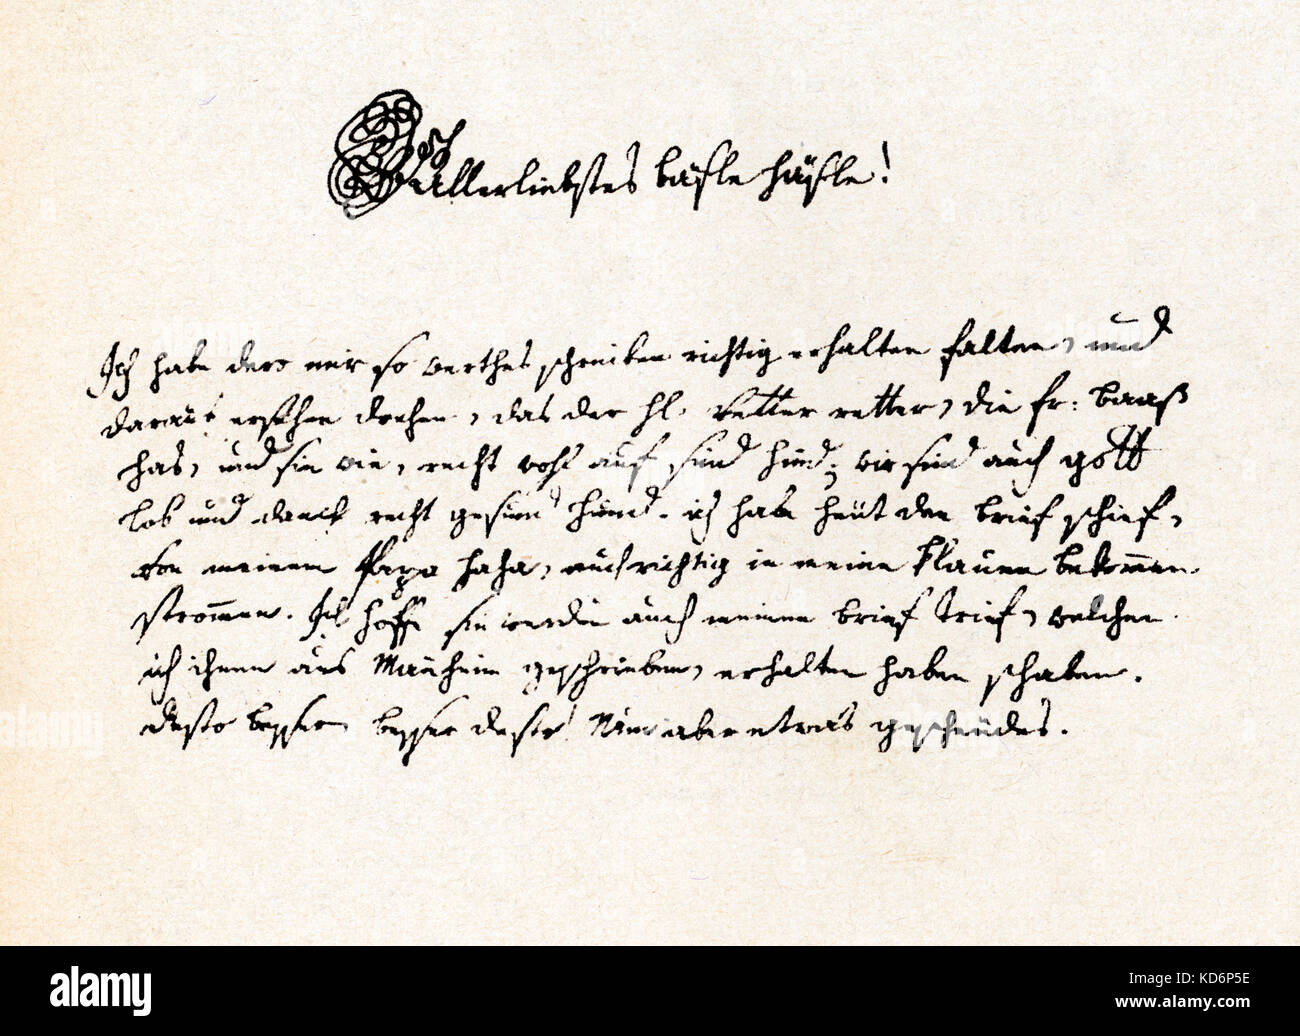 Allerliebstes bäsle häsle!
Ich habe dero mir so werthes schreiben richtig erhalten falten, und
daraus ersehen drehen, das der H: vetter retter, die fr: baaß
has, und sie wie, recht wohl auf sind hind; wir sind auch gott
lob und danck recht gesund hund. ich habe heüt den brief schief,
von meinem Papa haha, auch richtig in meine klauen bekom̅en
strom̅en. Ich hoffe sie werden auch meinen brief trief, welchen
ich ihnen aus Man̅heim geschrieben, erhalten haben schaben.
desto besser, besser desto! Nun aber etwas gescheüdes.
alamy
alamy
Image ID: KD6P5E
www.alamy.com